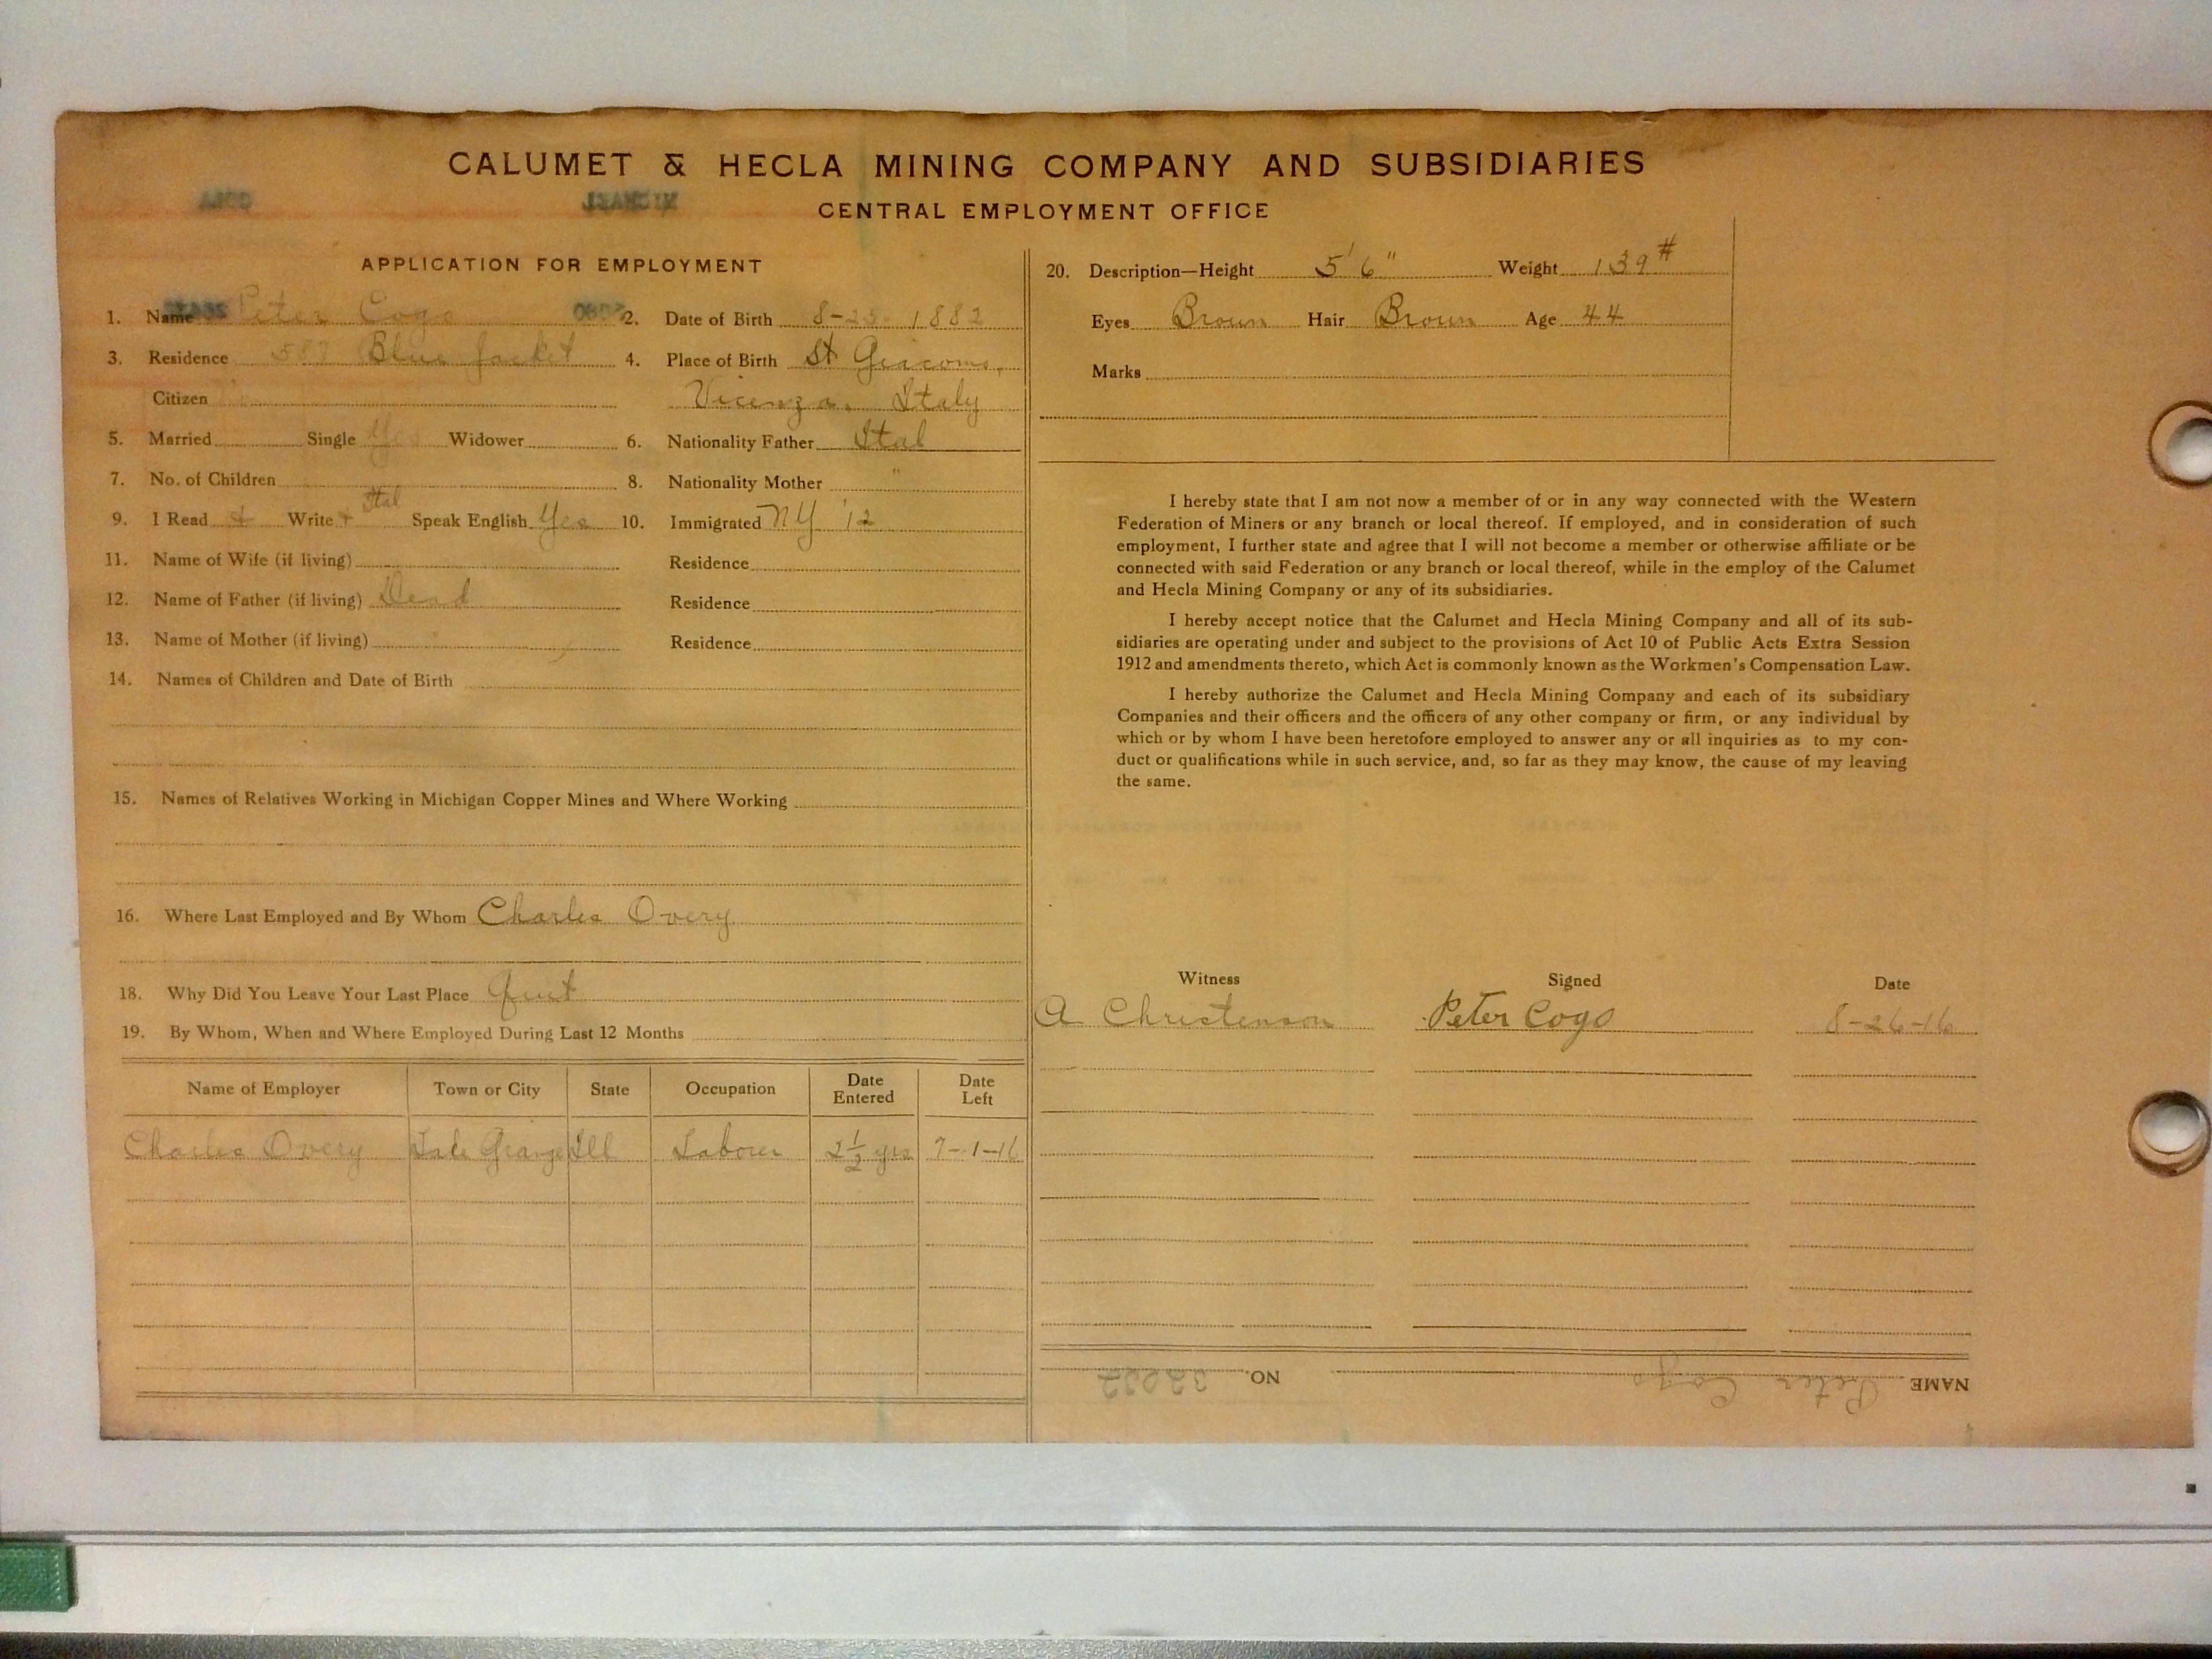 CALUMET & HECLA MINING COMPANY AND SUBSIDIARIES
CENTRAL EMPLOYMENT OFFICE
APPLICATION FOR EMPLOYMENT
1. Name Peter Cogo
2. Date of Birth 8-25-1882
3. Residence 587 Blue Jacket
4. Place of Birth St Giacomo,
Citizen
Vicenza, Italy
5. Married Single Yes Widower
6. Nationality Father Ital
7. No. of Children
8. Nationality Mother "
Ital
9. I Read + Write + Speak English Yes
10. Immigrated NY '12
11. Name of Wife (if living) Residence
12. Name of Father (if living) Dead Residence
13. Name of Mother (if living) " Residence
14. Names of Children and Date of Birth
15. Names of Relatives Working in Michigan Copper Mines and Where Working
16. Where Last Employed and By Whom Charles Overy
18. Why Did You Leave Your Last Place Quit
19. By Whom, When and Where Employed During Last 12 Months
Name of Employer Town or City State Occupation Date Entered Date Left
Charles Overy Grange Ill Laborer 2 1/2 yrs 7-1-16
20. Description—Height 5' 6" Weight 139#
Eyes Brown Hair Brown Age 44
Marks
I hereby state that I am not now a member of or in any way connected with the Western
Federation of Miners or any branch or local thereof. If employed, and in consideration of such
employment, I further state and agree that I will not become a member or otherwise affiliate or be
connected with said Federation or any branch or local thereof, while in the employ of the Calumet
and Hecla Mining Company or any of its subsidiaries.
I hereby accept notice that the Calumet and Hecla Mining Company and all of its sub-
sidiaries are operating under and subject to the provisions of Act 10 of Public Acts Extra Session
1912 and amendments thereto, which Act is commonly known as the Workmen's Compensation Law.
I hereby authorize the Calumet and Hecla Mining Company and each of its subsidiary
Companies and their officers and the officers of any other company or firm, or any individual by
which or by whom I have been heretofore employed to answer any or all inquiries as to my con-
duct or qualifications while in such service, and, so far as they may know, the cause of my leaving
the same.
Witness Signed Date
A Christenson Peter Cogo 8-26-16
NAME Peter Cogo NO. 32032